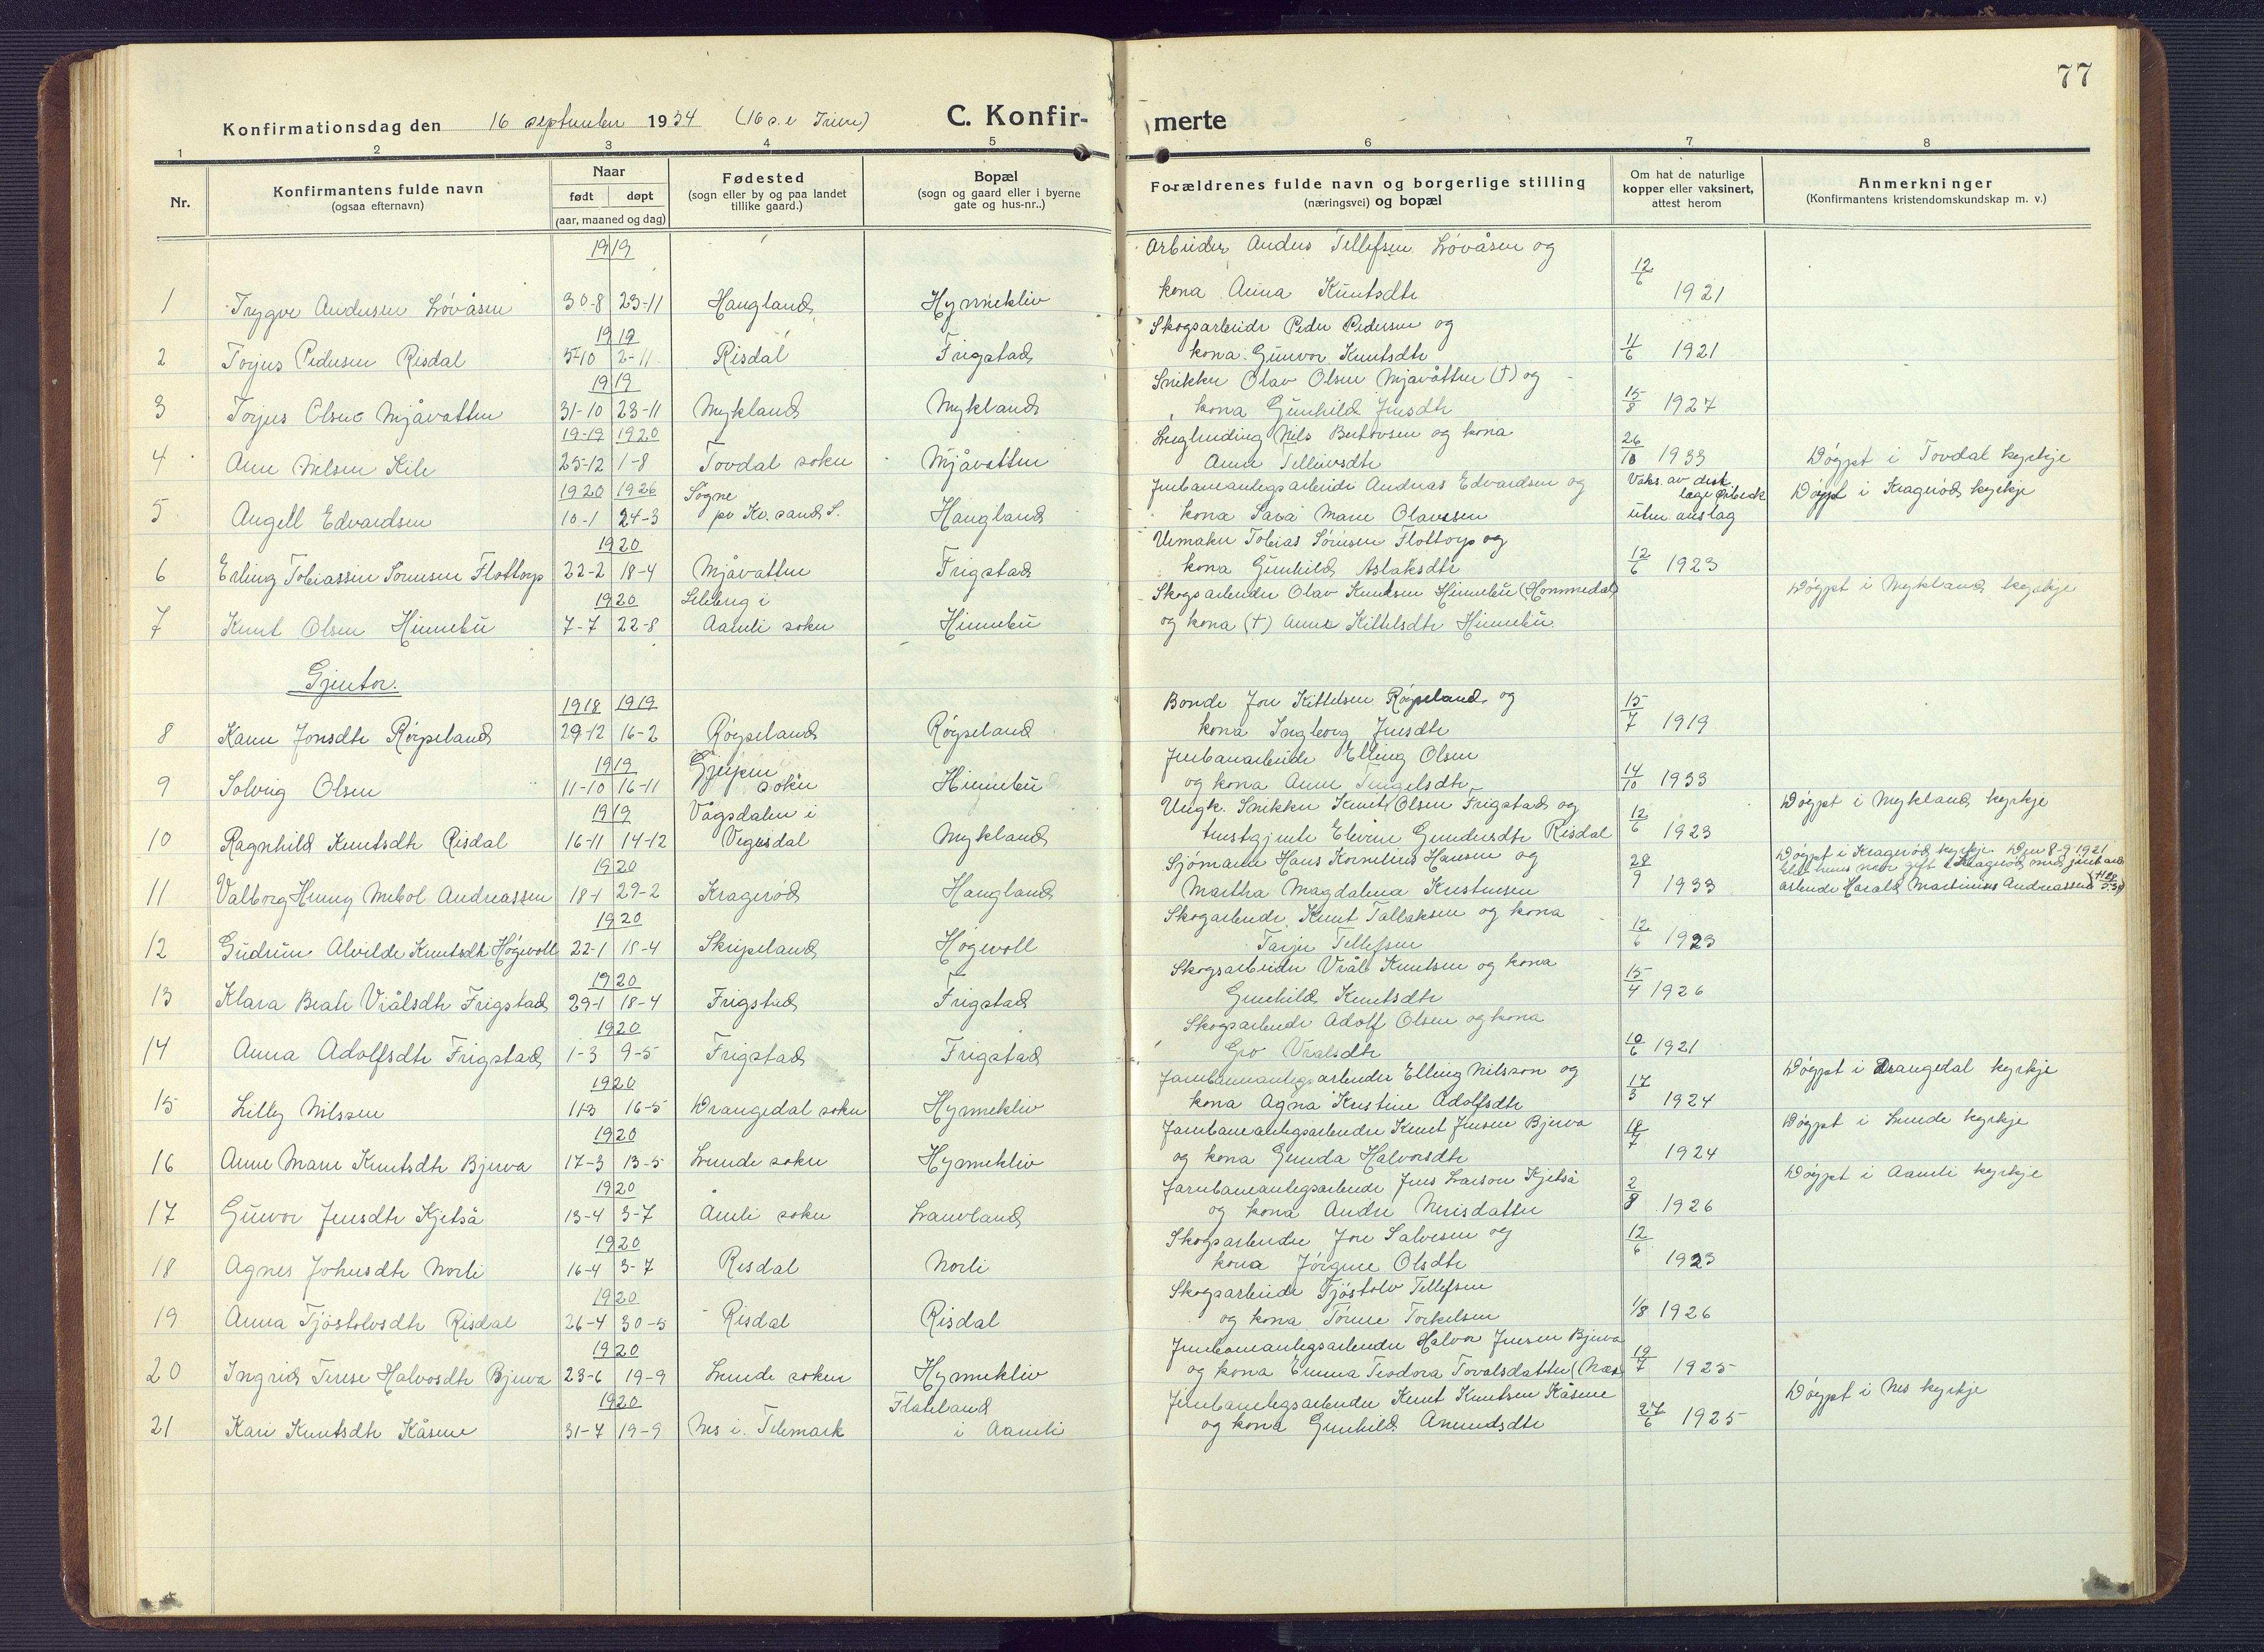 77
Konfirmationsdag den 16 september 1934 (16 s.e Trien) C. Konfir- merte
1 2 3 4 5 6 7 8
Nr. Konfirmantens fulde navn (ogsaa efternavn) Naar født døpt (aar, maaned og dag) Fødested (sogn eller by og paa landet tillike gaard.) Bopæl (sogn og gaard eller i byerne gate og hus-nr..) Forældrenes fulde navn og borgerlige stilling (næringsvei) og bopæl Om hat de naturlige kopper eller vaksinert, attest herom Anmerkninger (Konfirmantens kristendomskundskap m. v.)
1919 Arbeider Anders Tellefsen Lövåsen og
1 Trygve Andersen Lövåsen 30-8 23-11 Haugland Hynnekliv kona Anna Knutsdtr 12/6 1921
1919 Skogsarbeidr Peder Pedersen og
2 Torjus Pedersen Risdal 5-10 2-11 Risdal Frigstad kona Gunvor Knutsdtr 11/6 1921
1919 Snikker Olav Olsen Mjåvåtten (†) og
3 Torjus Olsen Mjåvatten 31-10 23-11 Mykland Mykland kona Gunhild Jensdtr 15/8 1927
19-19 1920 Nils Bertovsen og kona
4 Nilsen Kile 25-12 1-8 Tovdal sokn Mjåvatten Anne Tellevsdtr 26/10 1933 Döypt i Tovdal kyrkje
1920 1926 Søgne Jernbaneanlegsarbeidr Andreas Edvardsen og Vaks. av distr læge
5 Angell Edvardsen 10-1 24-3 pr Kr.sand S. Haugland kona Sara Marie Olaussen uten anslag Döypt i Kragerö kyrkje
1920 Urmaker Tobias Sörensen Flottorp og
6 Erling Tobiassen Sörensen Flottorp 22-2 18-4 Mjåvatten Frigstad kona Gunhild Aslaksdtr 12/6 1923
1920 Lileberg i Skogsarbeider Olav Knutsen Hinnebu (Hommedal) Döypt i Mykland kyrkje
7 Knut Olsen Hinnebu 7-7 22-8 Aamli sokn Hinnebu og kona (†) Anne Kittelsdtr Hinnebu
Gjentor.
1918 1919 Bonde Jon Kittelsen Röyseland og
8 Jonsdtr Röyseland 29-12 16-2 Röyseland Röyseland kona Ingborg Jensdtr 15/7 1919
1919 Gjerpen Jernbanarbeide Elling Olsen
9 Solveig Olsen 11-10 16-11 sokn Hinnebu og kona Anne Tengelsdtr 14/10 1933
1919 Vågsdalen i Ungk. Snikker Knut Olsen Frigstad og Döypt i Mykland kyrkje
10 Ragnhild Knutsdtr Risdal 16-11 14-12 Vegusdal Mykland tenstgjente Elevine Gundersdtr Risdal 12/6 1923
1920 Sjömann Hans Kornelius Hansen og Döypt i Kragerö kyrkje. Den 8-9 1921
11 Valborg Henny Andreassen 18-1 29-2 Kragerö Haugland Martha Magdalena Kristensen 28/9 1933 arbeide Harald Martinius Andreassen
1920 Skogarbeidr Knut Tallaksen og kona
12 Gudrun Alvilde Knutsdtr Högevoll 22-1 18-4 Skripeland Högevoll Tarjer Tellefsen 12/6 1923
1920 Skogsarbeider Vrål Knutsen og kona
13 Klara Beate Vrålsdtr Frigstad 29-1 18-4 Frigstad Frigstad Gunhild Knutsdtr 15/4 1926
1920 Skogsarbeidr Adolf Olsen og kona
14 Anna Adolfsdtr Frigstad 1-3 9-5 Frigstad Frigstad Gro Vralsdtr 10/6 1921
1920 Jarnbaneanlegsarbeider Elling Nilsson og Döypt i Drangedal kyrkje
15 Lilly Nilssen 11-3 16-5 Drangedal sokn Hynnekliv kona Agna Kristine Adolfsdtr 17/3 1924
1920 Jarnbaneanlegsarbeider Knut Jensen Bjerva Döypt i Lunde kyrkje
16 Anne Marie Knutsdtr Bjerva 17-3 13-5 Lunde sokn Hynnekliv og kona Gunda Halvorsdtr 18/7 1924
1920 Jarnbaneanlegsarbeide Jens Larson Kjetså Döypt i Aamli kyrkje
17 Gunvor Jensdtr Kjetså 13-4 3-7 Åmli sokn Lauvland og kona Andre 2/8 1926
1920 Skogsarbeider Jon Salvesen og
18 Agnes Johnsdtr Norli 16-4 3-7 Risdal Norli kona Jörgine Olsdtr 12/6 1923
1920 Skogsarbeide Tjöstolv Tellefsen
19 Anna Tjöstolvsdtr Risdal 26-4 30-5 Risdal Risdal og kona Torkelsen 1/8 1926
1920 Jernbaneanlegsarbeider Halvor Jensen Bjerva
20 Ingrid Terese Halvosdtr Bjerva 23-6 19-9 Lunde sokn Hynnekliv og kona Emma Teodora Tovalsdatter (Næs) 19/7 1925
1920 Flateland Jernbaneanlegsarbeider Knut Knutsen Kåsene Döypt i Nes kyrkje
21 Kari Knutsdtr Kåsene 31-7 19-9 Nes i Telemark i Aamli og kona Gunhild Amundsdtr 27/6 1925